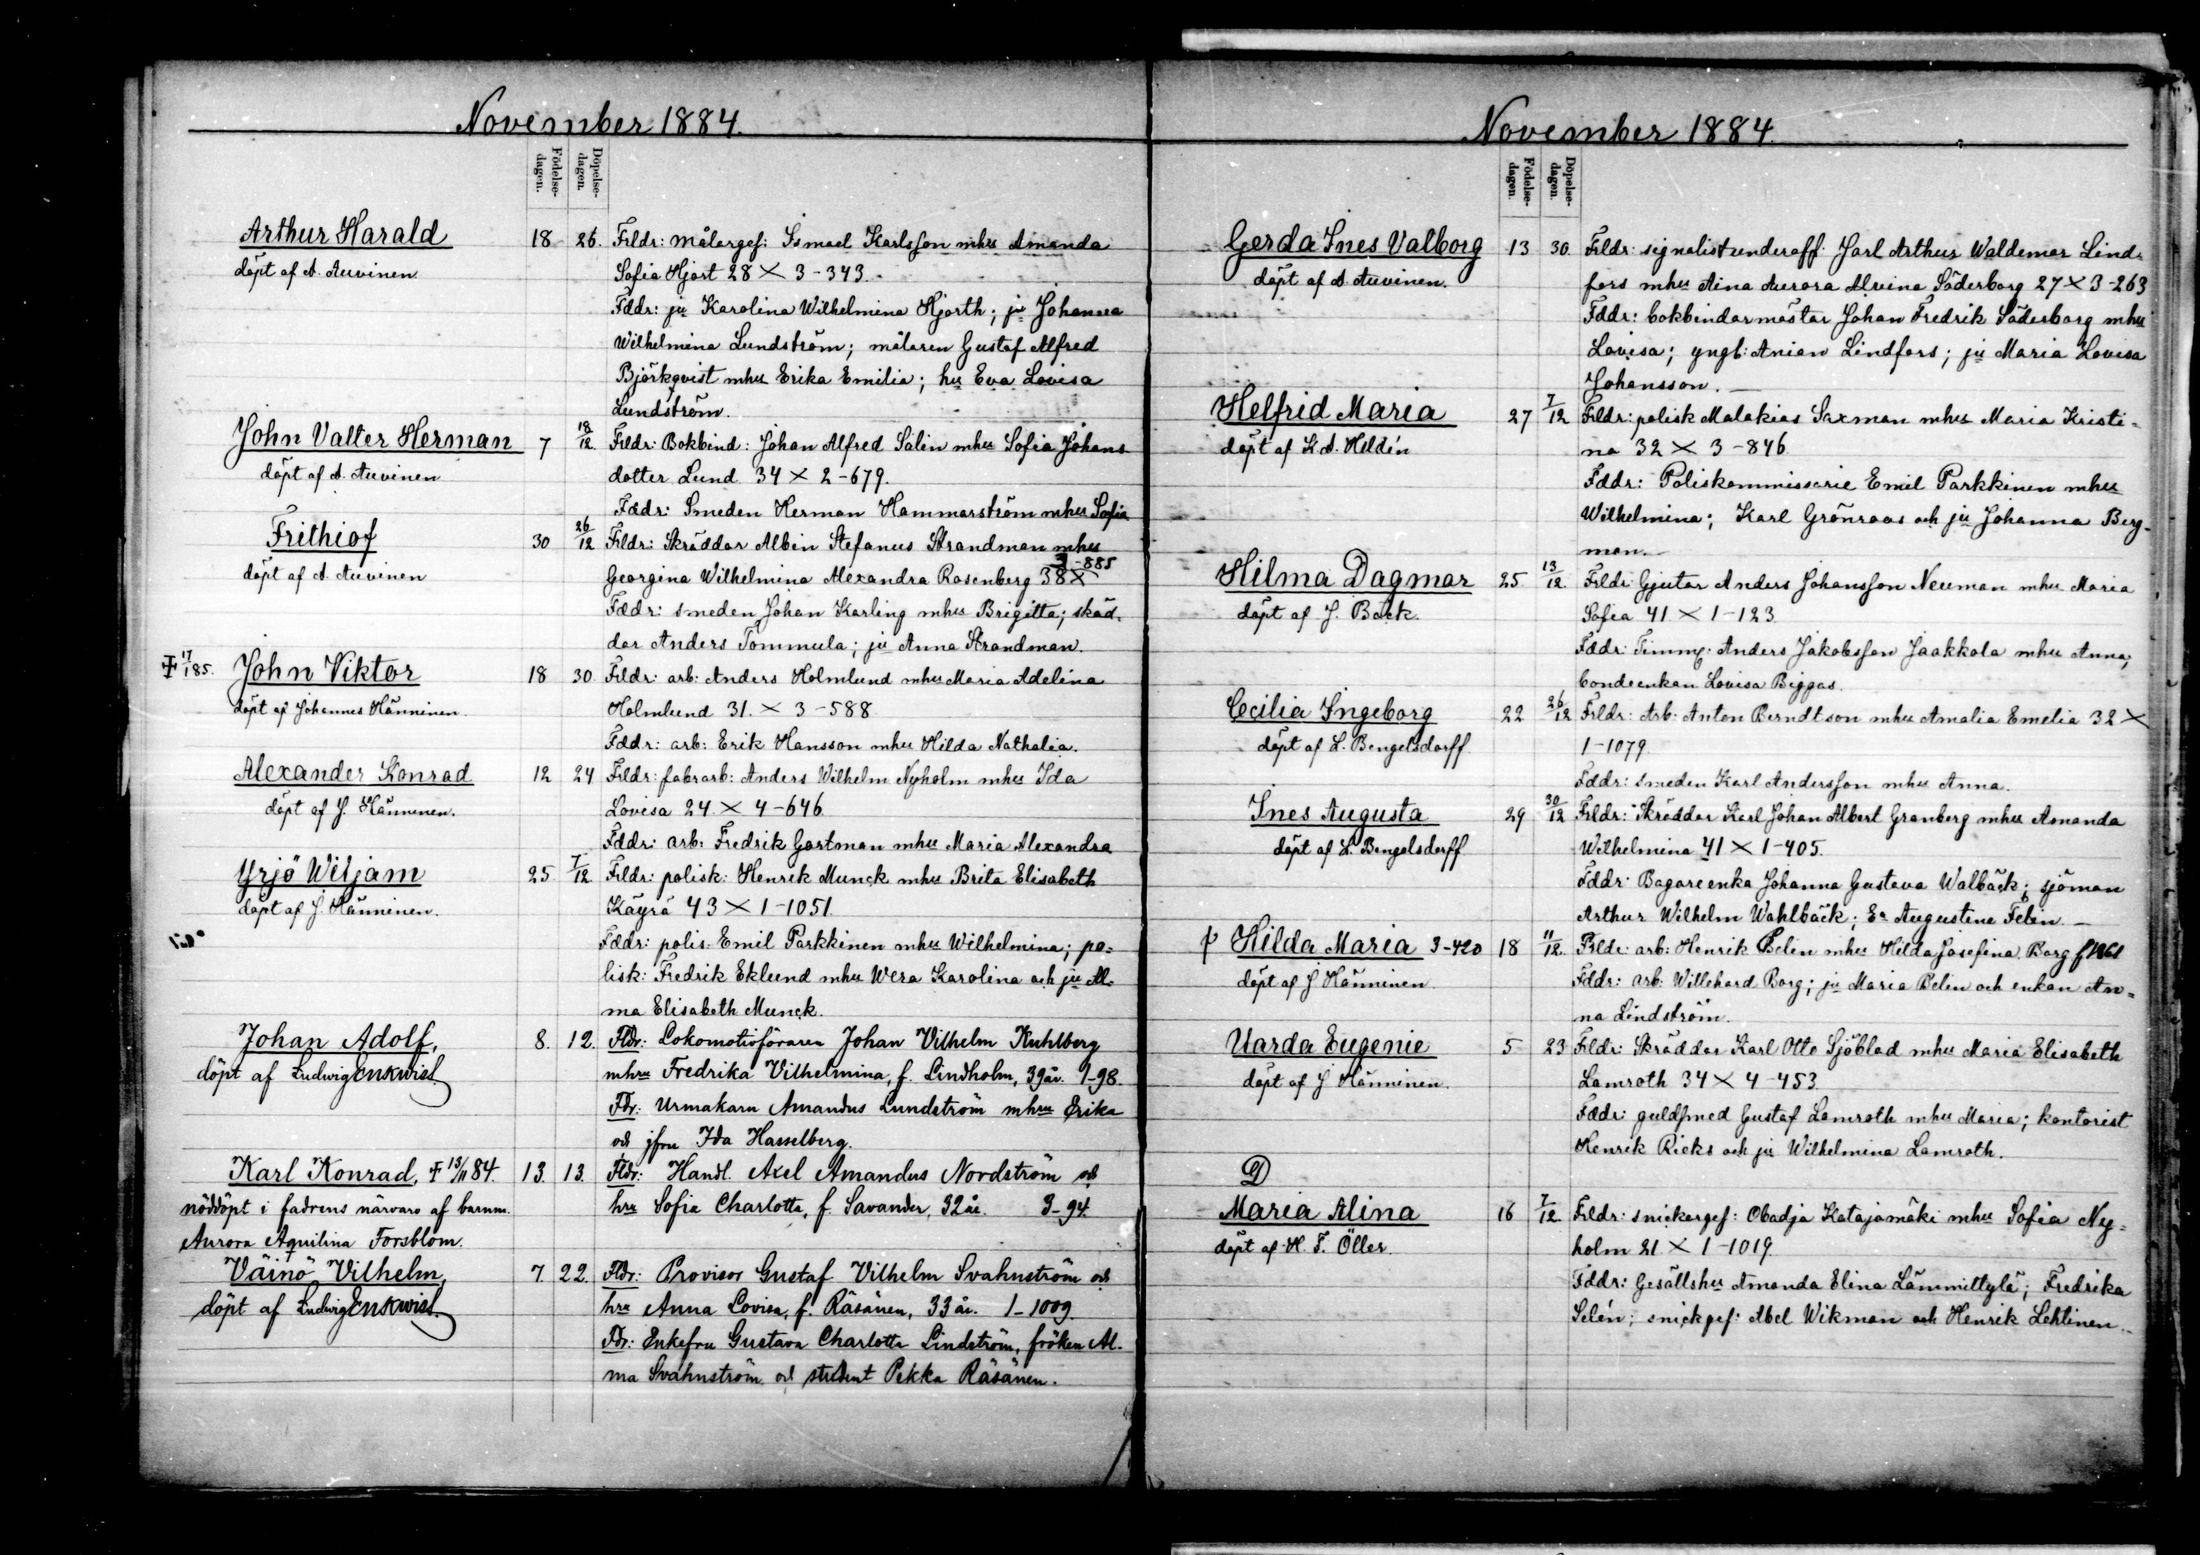 November 1884.
Födelse-
dagen.
Döpelse-
dagen.
Arthur Harald 18 26. Frldr: målargef: Ismael Karlsson mhu Amanda
döpt af A. Auvinen. Sofia Hjort 28 X 3-343.
Fddr: ju Karolina Wilhelmina Hjorth; ju Johanna
Wilhelmina Lundström; målaren Gustaf Alfred
Björkqvist mhu Erika Emilia; hu Eva Lovisa
Lundström.
John Valter Herman 7 18/12. Frldr: Bokbind: Johan Alfred Salin mhu Sofia Johans
döpt af A. Auvinen dotter Lund 34 X 2-679.
Fddr: Smeden Herman Hammarström mhu Sofia
Frithiof 30 26/12 Frldr: Skräddar Albin Stefanus Strandman mhu
döpt af A. Auvinen Georgina Wilhelmina Alexandra Rosenberg 38X 3-885
Fddr: smeden Johan Karling mhu Brigitta; skäd-
dar Anders Tommula; ju Anna Strandman.
John Viktor 18 30. Frldr: arb: Anders Holmlund mhu Maria Adelina
döpt af Johannes Hänninen. Holmlund 31. X 3-588
Fddr: arb: Erik Hansson mhu Hilda Nathalia.
Alexander Konrad 12 24 Frldr: fabrarb: Anders Wilhelm Nyholm mhu Ida
döpt af J. Hänninen. Lovisa 24 X 4-646.
Fddr: arb: Fredrik Gartman mhu Maria Alexandra
Yrjö Wiljam 25 7/12 Frldr: polisk: Henrik Munck mhu Brita Elisabeth
döpt af J. Hänninen. Käyrä 43 X 1-1051.
Fddr: polis: Emil Parkkinen mhu Wilhelmina; po-
lisk: Fredrik Eklund mhu Wera Karolina och ju Al-
ma Elisabeth Munck.
Johan Adolf, 8. 12. Fldr: Lokomotivföraren Johan Vilhelm Kuhlberg
döpt af Ludwig Enkvist. mhru Fredrika Vilhelmina, f. Lindholm, 39 år. 1-98.
Fdr: Urmakaren Amandus Lundström mhru Erika
och jfru Ida Hasselberg.
Karl Konrad, † 13/11 84. 13. 13. Fldr: Handl. Axel Amandus Nordström och
nöddöpt i fadrens närvaro af barnm. hru Sofia Charlotta, f. Savander, 32 år. 3-94.
Aurora Aquilina Forsblom.
Väinö Vilhelm, 7. 22. Fldr: Provisor Gustaf Vilhelm Svahnström och
döpt af Ludwig Enkvist. hru Anna Lovisa, f. Räsänen, 33 år. 1-1009.
Fdr: Enkefru Gustava Charlotta Lindström, fröken Al-
ma Svahnström och student Pekka Räsänen.
November 1884.
Födelse-
dagen.
Döpelse-
dagen.
Gerda Ines Valborg 13 30. Frldr: signalistunderoff: Jarl Arthur Waldemar Lind-
döpt af A. Auvinen. fors mhu Aina Aurora Alvina Söderborg 27 X 3-263
Fddr: bokbindarmästar Johan Fredrik Söderborg mhu
Lovisa; yngl: Anian Lindfors; ju Maria Lovisa
Johansson.
Helfrid Maria 27 7/12 Frldr: polisk Malakias Saxman mhu Maria Kristi-
döpt af K. A. Heldén na 32 X 3-846.
Fddr: Poliskommissarie Emil Parkkinen mhu
Wilhelmina; Karl Grönroos och ju Johanna Berg-
man.
Hilma Dagmar 25 13/12 Frldr: Gjutar Anders Johansson Neuman mhu Maria
döpt af J. Bäck. Sofia 41 X 1-123.
Fddr: Timmg: Anders Jakobsson Jaakkola mhu Anna;
bondeenkan Lovisa Biggas.
Cecilia Ingeborg 22 26/12 Frldr: Arb: Anton Berndtson mhu Amalia Emelia 32 X
döpt af L. Bengelsdorff 1-1079.
Fddr: smeden Karl Andersson mhu Anna.
Ines Augusta 29 30/12 Frldr: Skräddar Karl Johan Albert Granberg mhu Amanda
döpt af L. Bengelsdorff Wilhelmina 41 X 1-405.
Fddr: Bagareenka Johanna Gustava Walbäck; sjöman
Arthur Wilhelm Wahlbäck; Augustine
Hilda Maria 3-420 18 11/12. Frldr: arb: Henrik Belin mhu Hilda Josefina Borg
döpt af J Hänninen. Fddr: arb: Willehard Borg; ju Maria Belin och enkan An-
na Lindström.
Uarda Eugenie 5 23 Frldr: Skräddar Karl Otto Sjöblad mhu Maria Elisabeth
döpt af J Hänninen. Lamroth 34 X 4-453
Fddr: guldsmed Gustaf Lamroth mhu Maria; kontorist
Henrik Ricks och ju Wilhelmina Lamroth.
D
Maria Alina 16 7/12 Frldr: snickargef: Obadja Katajamäki mhu Sofia Ny-
döpt af H. F. Öller. holm 21 X 1-1019
Fddr: Gesällshu Amanda Elina Lämmittylä; Fredrika
Selén; snickgef: Abel Wikman och Henrik Lehtinen.